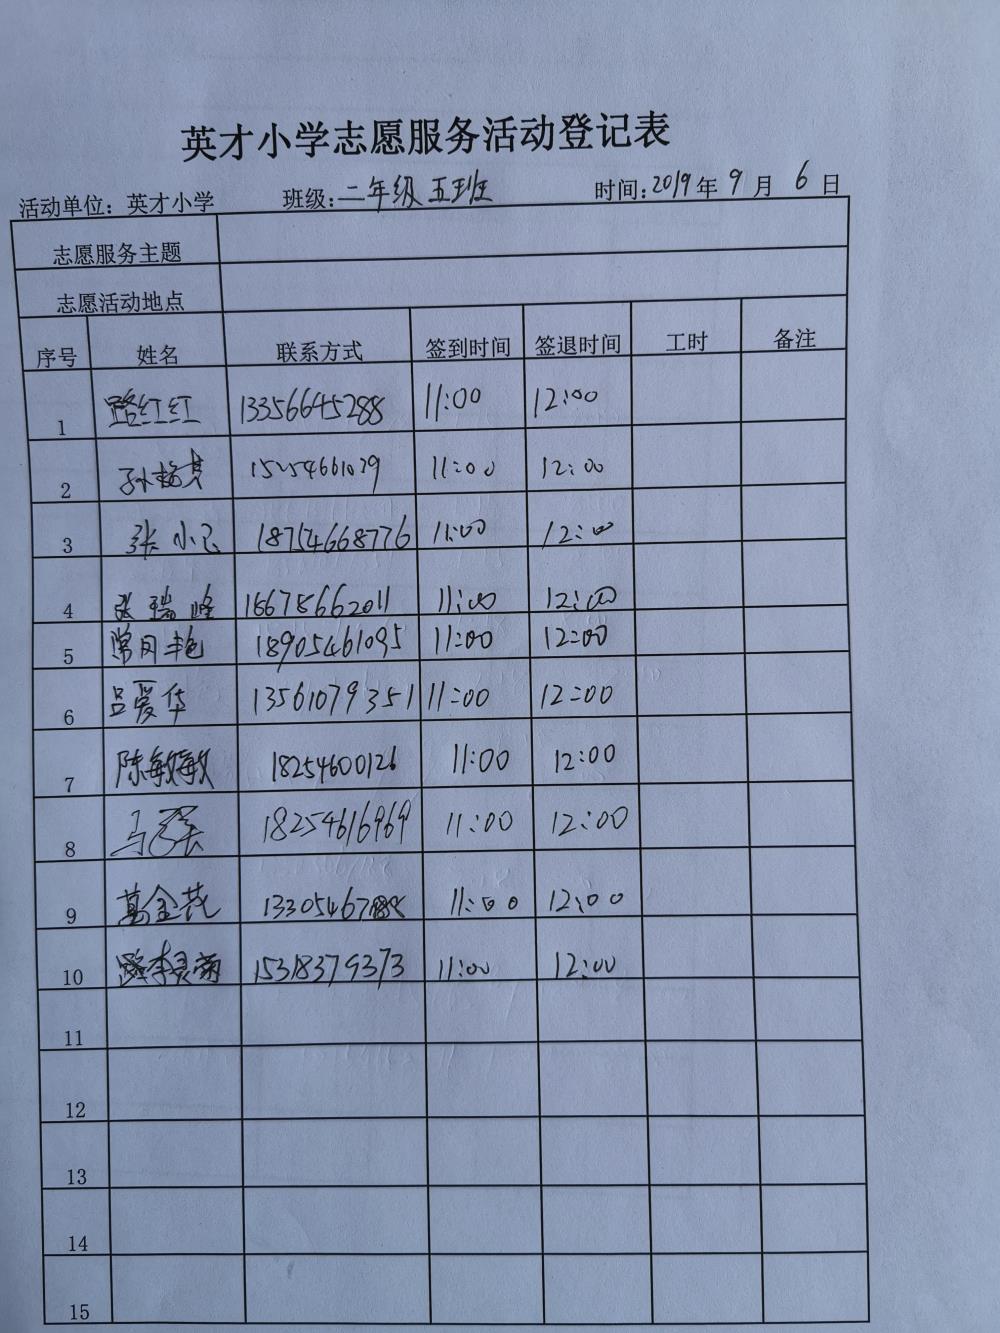 英才小学志愿服务活动登记表
活动单位：英才小学 班级：二年级五班 时间：2019年9月6日
志愿服务主题
志愿活动地点
序号 姓名 联系方式 签到时间 签退时间 工时 备注
1 路红红 13356645288 11:00 12:00
2 15254661029 11:00 12:00
3 张小飞 18754668776 11:00 12:00
4 张瑞峰 11:00 12:00
5 常月艳 18905461095 11:00 12:00
6 吕爱华 13561079351 11:00 12:00
7 陈敏敏 18254600126 11:00 12:00
8 18254616969 11:00 12:00
9 11:00 12:00
10 15318379373 11:00 12:00
11
12
13
14
15